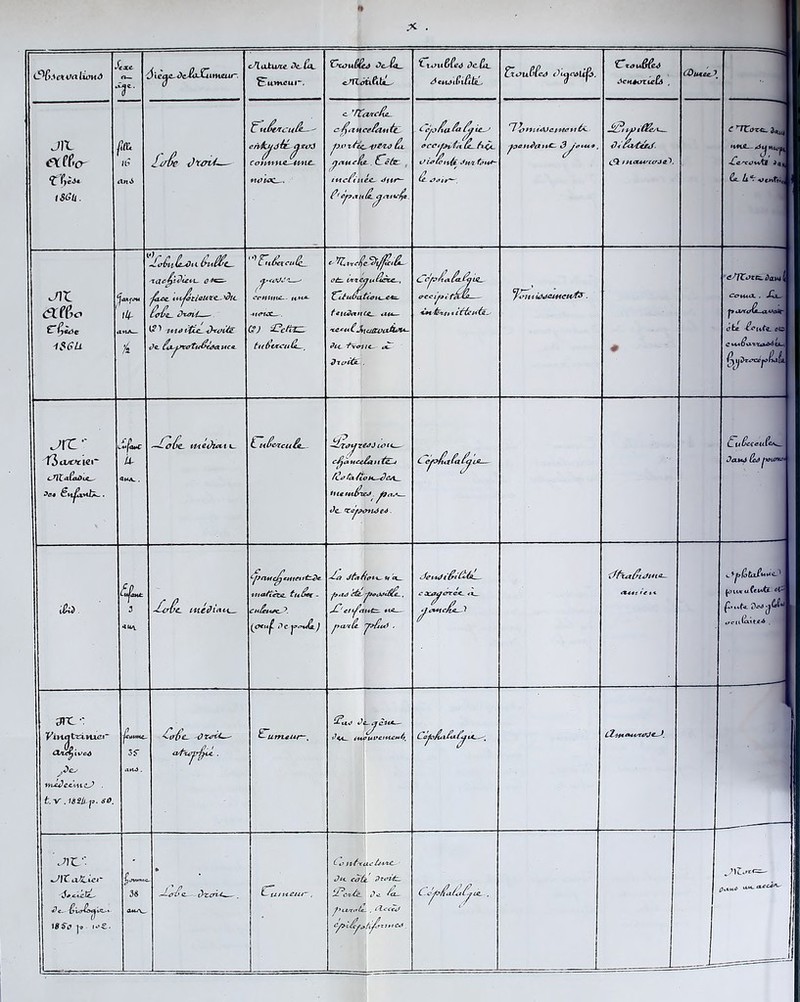 Observations
Sexe
et
âge.
Siège de la Tumeur.
Nature de la
Tumeur.
Troubles de la
Motilité.
Troubles de la
sensibilité.
Troubles digestifs.
Troubles
sensoriels.
Durée.
Mr
Allbo
Thèse
1864.
fille
16
ans
Lobe droit
Tubercule
enkysté gros
comme une
noix.
Marche
chancelante
portée vers la
gauche. Tête
inclinée sur
l'épaule gauche.
Céphalalgie
occipitale très
violente surtout
le soir.
Vomissements
pendant 3 jours.
Pupilles
dilatées.
Amaurose.
Mr
Allbo
Thèse
1864
garçon
14
ans
½
(1) Lobule du bulbe
rachidien et
face inférieure du
lobe droit
(2) moitié droite
de la protubérance
(1) Tubercule
grosse
comme une
noix.
(2) Petit
tubercule.
Marche difficile
et irrégulière,
Titubation et
tendance au
recul.
du tronc à
droite.
Céphalalgie
occipitale
intermittente.
Vomissements.
Morte dans le
coma. La
parole avait
été lente et
embarrassée
hydrocéphale
Mr
Barrier
Maladies
des Enfants.
Enfant
4
ans.
Lobe médian
Tubercule
Progression
chancelante
Rotation des
membres, pas
de réponses.
Céphalalgie
Tubercules
dans les poumons
ibid
Enfant
3
ans
Lobe médian
Épanchement de
matière tuber-
culeuse.
(œuf de poule)
La station n'a
pas été possible.
L'enfant ne
parle plus.
Sensibilité
exagérée à
gauche
Strabisme
ancien
Mr
Vingtrinier
Archives
de
médecine.
t. V. 1824 p. 80.
femme
35
ans.
Lobe droit
atrophié.
Tumeur.
Pas de gêne
du mouvement.
Céphalalgie.
Amaurose.
Mr
Société
de biologie
1850 p. 102.
homme
38
ans
Lobe droit.
Tumeur.
Contracture
du côté droit
Perte de la
parole. Accès
épileptiformes
Céphalalgie.
Morte
dans un accès